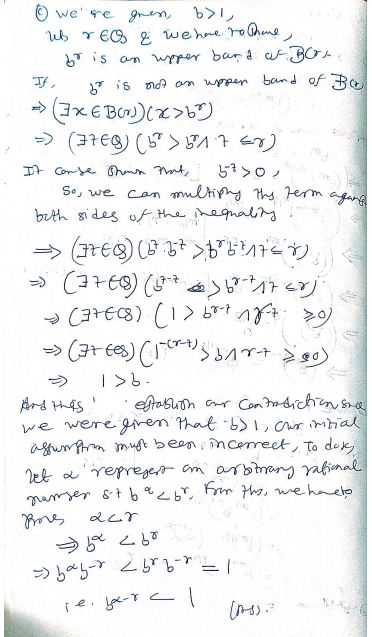 © we're given, b>1,
r ∈ Q & we have to show,
b^r is an upper band of B(r).
If, b^r is not an upper band of B(r)
⇒ (∃x ∈ B(r)) (x > b^r)
⇒ (∃t ∈ Q) (b^t > b^r ∧ t ≤ r)
It can be shown that, b^t > 0,
So, we can multiply this term against
both sides of the inequality.
⇒ (∃t ∈ Q) (b^t b^-t > b^r b^-t ∧ t ≤ r)
⇒ (∃t ∈ Q) (b^t-t > b^r-t ∧ t ≤ r)
⇒ (∃t ∈ Q) (1 > b^r-t ∧ r-t ≥ 0)
⇒ (∃t ∈ Q) (1^-(r-t) > b ∧ r-t ≥ 0)
⇒ 1 > b.
And this establish our contradiction since
we were given that b>1, our initial
assumption must been incorrect, To do so,
let α represent an arbitrary rational
number s.t b^α < b^r, From this, we have to
prove α < r
⇒ b^α < b^r
⇒ b^α b^-r < b^r b^-r = 1
i.e. b^α-r < 1